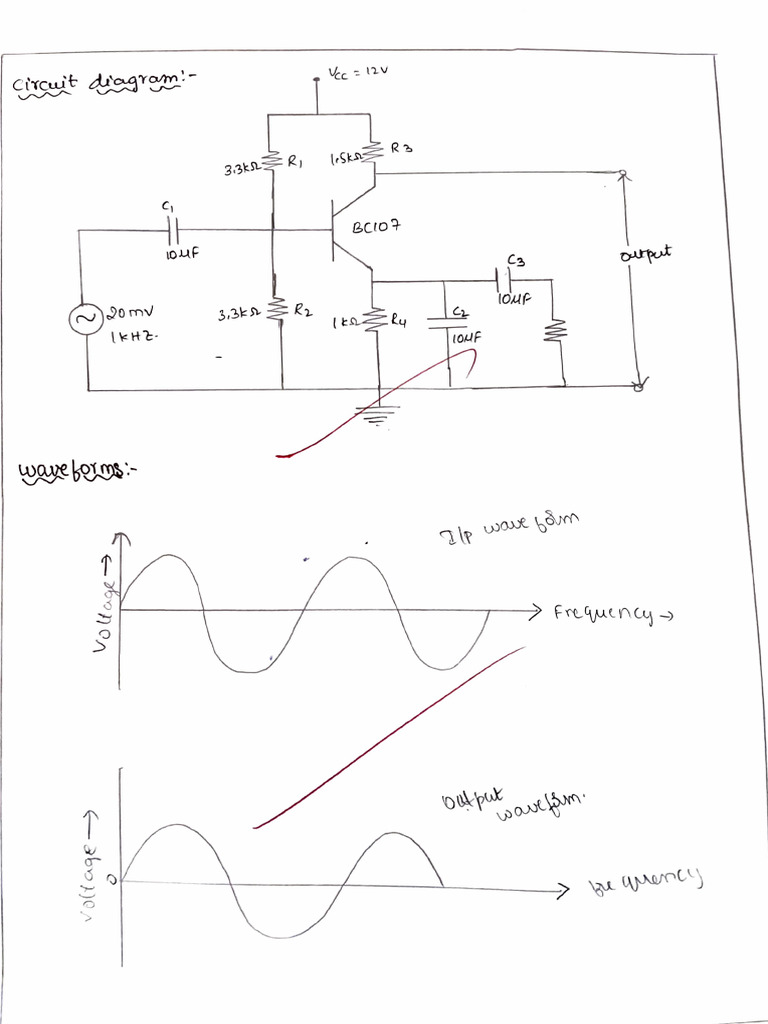 Circuit diagram:-
VCC = 12V
3.3kΩ R1
1.5kΩ R3
C1
10µF
BC107
Output
C3
10µF
20mv
1kHZ.
3.3kΩ R2
1kΩ R4
C2
10µF
Waveforms:-
I/P waveform
Voltage→
Frequency→
Output
waveform.
Voltage→
0
frequency